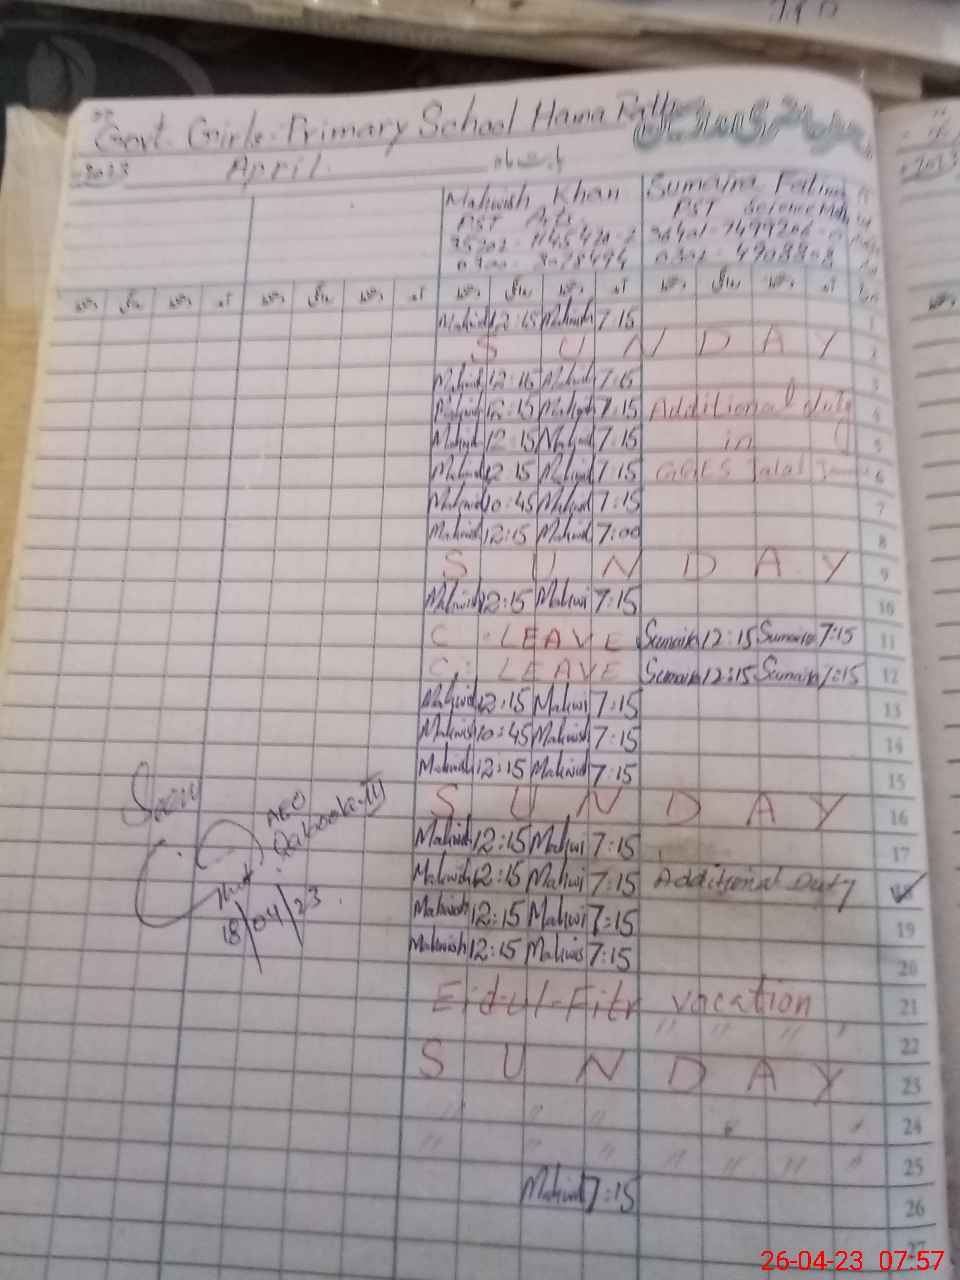 Govt. Girls Primary School
2023 April
Mahwish Khan Sumaira Fatima
PST Arts PST Science Math
دستخط روانگی دستخط آمد دستخط روانگی دستخط آمد دستخط روانگی دستخط آمد دستخط روانگی دستخط آمد
Mahwish 12:15 Mahwish 7:15 1
S U N D A Y 2
Mahwish 12:15 Mahwish 7:15 3
Mahwish 12:15 Mahwish 7:15 Additional duty 4
Mahwish 12:15 Mahwish 7:15 in 5
Mahwish 12:15 Mahwish 7:15 GGES Jalal 6
Mahwish 10:45 Mahwish 7:15 7
Mahwish 12:15 Mahwish 7:00 8
S U N D A Y 9
Mahwish 12:15 Mahwi 7:15 10
C. LEAVE Sumaira 12:15 Sumaira 7:15 11
C. LEAVE Sumaira 12:15 Sumaira 7:15 12
Mahwish 12:15 Mahwi 7:15 13
Mahwish 10:45 Mahwish 7:15 14
Mahwish 12:15 Mahwish 7:15 15
S U N D A Y 16
Mahwish 12:15 Mahwi 7:15 17
Mahwish 12:15 Mahwi 7:15 Additional Duty 18
Mahwish 12:15 Mahwi 7:15 19
Mahwish 12:15 Mahwis 7:15 20
Eid-ul-Fitr vacation 21
" " " " 22
S U N D A Y 23
" " " " " 24
" " " " " " " 25
Mahwish 7:15 26
27
Seen
AEO
18/04/23
26-04-23 07:57